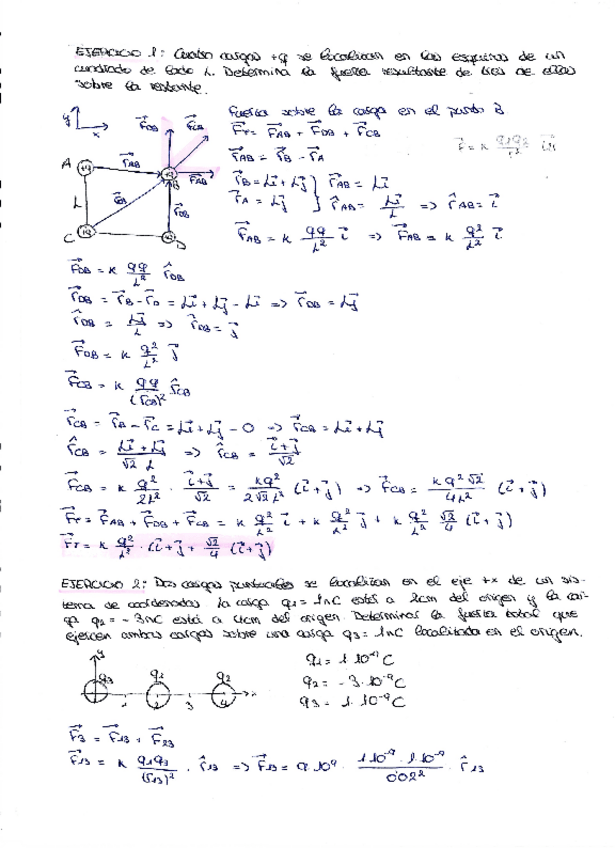 EJERCICIO 1: Cuatro cargas +q se localizan en las esquinas de un
cuadrado de lado L. Determina la fuerza resultante de tres de ellas
sobre la restante.
Fuerza sobre la carga en el punto B.
y x F⃗DB F⃗CB
F⃗T = F⃗AB + F⃗DB + F⃗CB
F⃗ = K q1q2/r²
A r⃗AB +q B F⃗AB
r⃗AB = r⃗B - r⃗A
r⃗B = Li⃗ + Lj⃗ } r⃗AB = Li⃗
r⃗A = Lj⃗ } r̂AB = Li⃗/L => r̂AB = i⃗
L r⃗CB r⃗DB
C +q D
F⃗AB = K qq/L² i⃗ => F⃗AB = K q²/L² i⃗
F⃗DB = K qq/L² r̂DB
r⃗DB = r⃗B - r⃗D = Li⃗ + Lj⃗ - Li⃗ => r⃗DB = Lj⃗
r̂DB = Lj⃗/L => r̂DB = j⃗
F⃗DB = K q²/L² j⃗
F⃗CB = K qq/(rCB)² r̂CB
r⃗CB = r⃗B - r⃗C = Li⃗ + Lj⃗ - 0 => r⃗CB = Li⃗ + Lj⃗
r̂CB = (Li⃗ + Lj⃗)/(√2 L) => r̂CB = (i⃗ + j⃗)/√2
F⃗CB = K q²/2L² · (i⃗ + j⃗)/√2 = Kq²/(2√2 L²) (i⃗ + j⃗) => F⃗CB = Kq²√2/4L² (i⃗ + j⃗)
F⃗T = F⃗AB + F⃗DB + F⃗CB = K q²/L² i⃗ + K q²/L² j⃗ + K q²/L² √2/4 (i⃗ + j⃗)
F⃗T = K q²/L² · (i⃗ + j⃗ + √2/4 (i⃗ + j⃗)
EJERCICIO 2: Dos cargas puntuales se localizan en el eje +x de un sis-
tema de coordenadas. La carga q1 = 1nC está a 2cm del origen y la car-
ga q2 = -3nC está a 4cm del origen. Determinar la fuerza total que
ejercen ambas cargas sobre una carga q3 = 1nC localizada en el origen.
y q3 q1 q2
1 2 3 4 x
q1 = 1·10⁻⁹ C
q2 = -3·10⁻⁹ C
q3 = 1·10⁻⁹ C
F⃗3 = F⃗13 + F⃗23
F⃗13 = K q1q3/(r13)² · r̂13 => F⃗13 = 9·10⁹ · 1·10⁻⁹ · 1·10⁻⁹/0'02² · r̂13